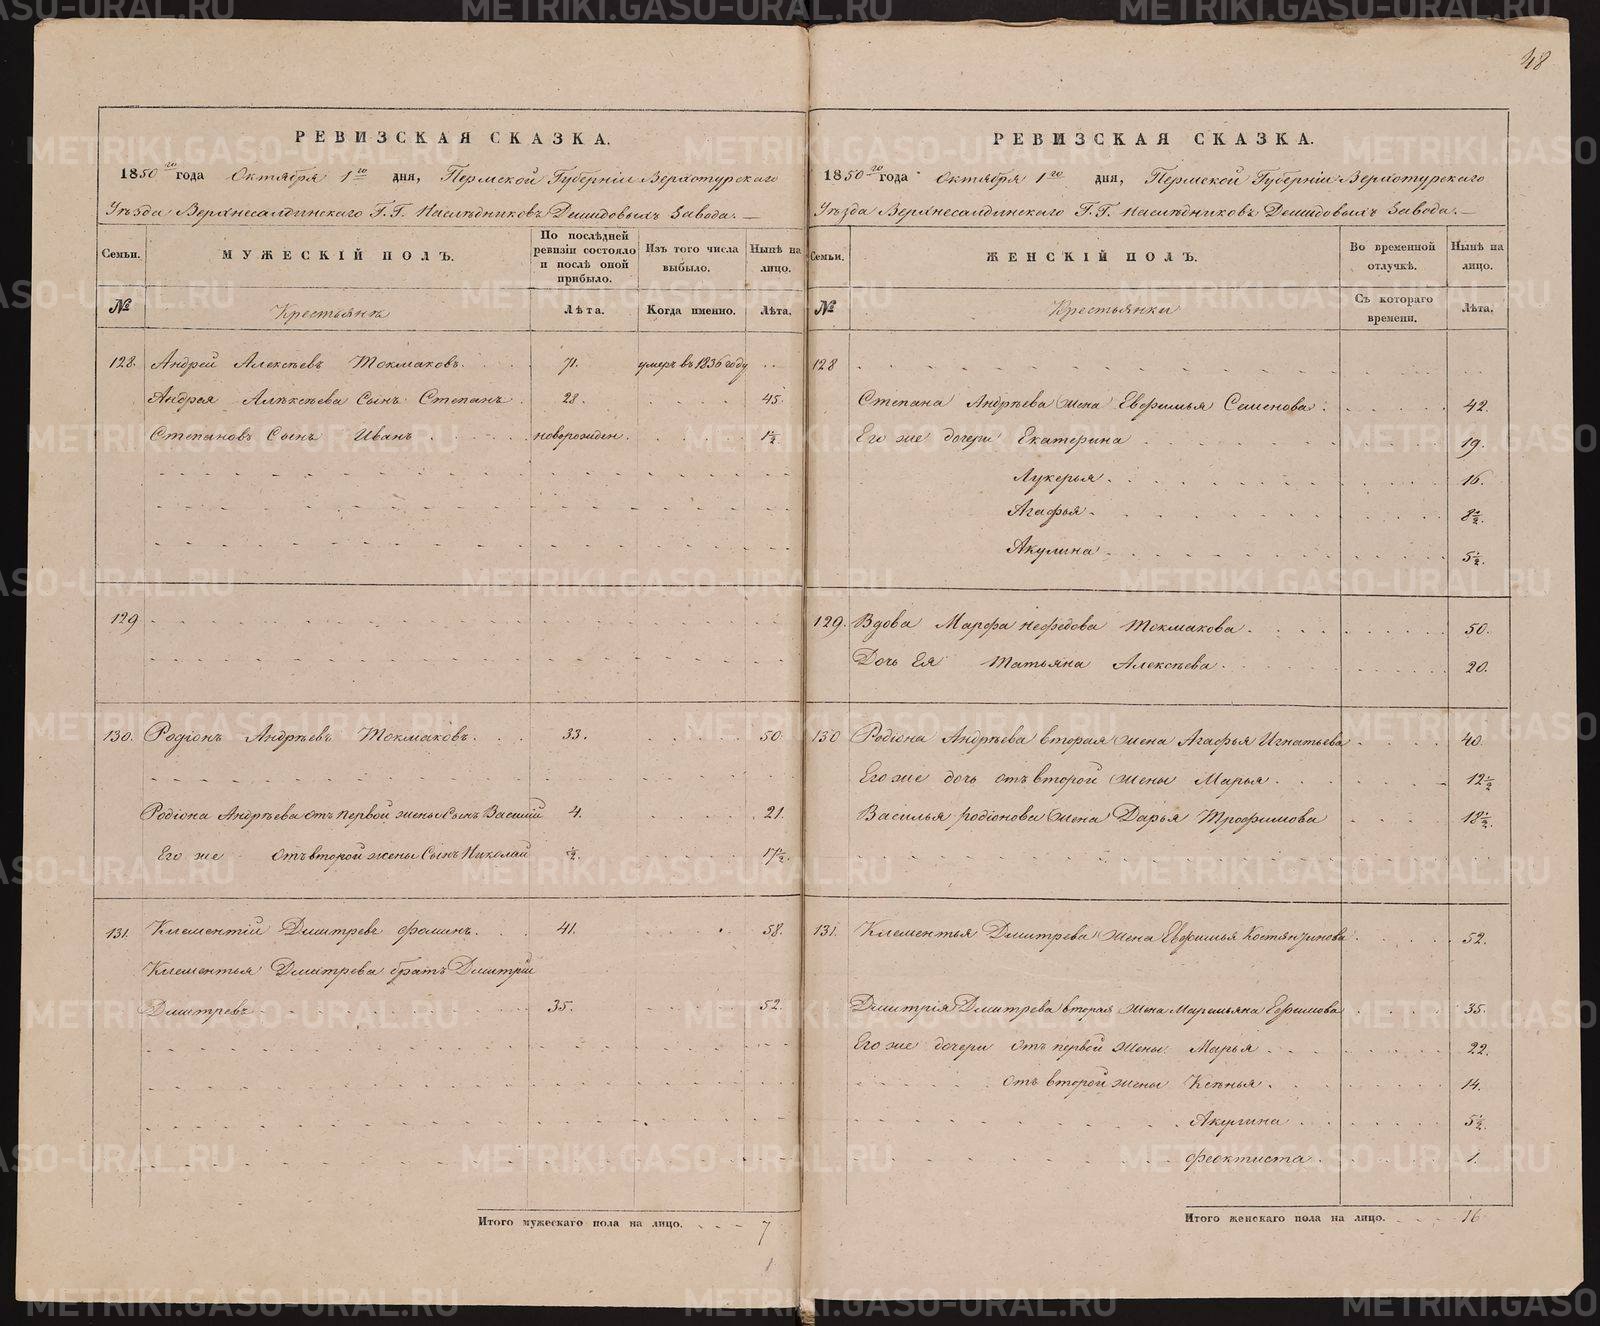 48
РЕВИЗСКАЯ СКАЗКА.
1850го года Октября 1го дня, Пермской Губерніи Верхотурскаго
Уѣзда Верхнесалдинскаго Г.Г. Наслѣдниковъ Демидовыхъ Завода.
Семьи.
МУЖЕСКІЙ ПОЛЪ.
По послѣдней ревизіи состояло и послѣ оной прибыло.
Изъ того числа выбыло.
Нынѣ на лицо.
№
Крестьяне
Лѣта.
Когда именно.
Лѣта.
128. Андрей Алексѣевъ Токмаковъ. 71. умеръ въ 1836 году
Андрея Алексѣева Сынъ Степанъ 28. 45.
Степановъ Сынъ Иванъ новорожден. 1½
129
130. Родіонъ Андрѣевъ Токмаковъ. 33. 50
Родіона Андрѣева отъ первой жены Сынъ Василій 4. 21.
Его же отъ второй жены Сынъ Николай ½ 17½
131. Клементій Дмитревъ Фоминъ. 41. 58.
Клементья Дмитрева братъ Дмитрій
Дмитревъ 35. 52.
Итого мужескаго пола на лицо. 7
РЕВИЗСКАЯ СКАЗКА.
1850го года Октября 1го дня, Пермской Губерніи Верхотурскаго
Уѣзда Верхнесалдинскаго Г.Г. Наслѣдниковъ Демидовыхъ Завода.
Семьи.
ЖЕНСКІЙ ПОЛЪ.
Во временной отлучкѣ.
Нынѣ на лицо.
№
Крестьянки
Съ котораго времени.
Лѣта.
128
Степана Андрѣева жена Евфимья Семенова. 42.
Его же дочери Екатерина 19.
Лукерья. 16.
Агафья. 8½.
Акулина 5½.
129. Вдова Марфа Нефедова Токмакова. 50.
Дочь Ея Татьяна Алексѣева. 20.
130 Родіона Андрѣева вторая жена Агафья Игнатьева 40.
Его же дочь отъ второй жены Марья. 12½
Василья Родіонова жена Дарья Трофимова 18½.
131. Клементья Дмитрева жена Евфимья Костянтинова 52.
Дмитрія Дмитрева вторая жена Маремьяна Ефимова 35.
Его же дочери отъ первой жены Марья 22.
отъ второй жены Ксѣнья. 14.
Акулина 5½.
Феоктиста. 1.
Итого женскаго пола на лицо. 16
METRIKI.GASO-URAL.RU